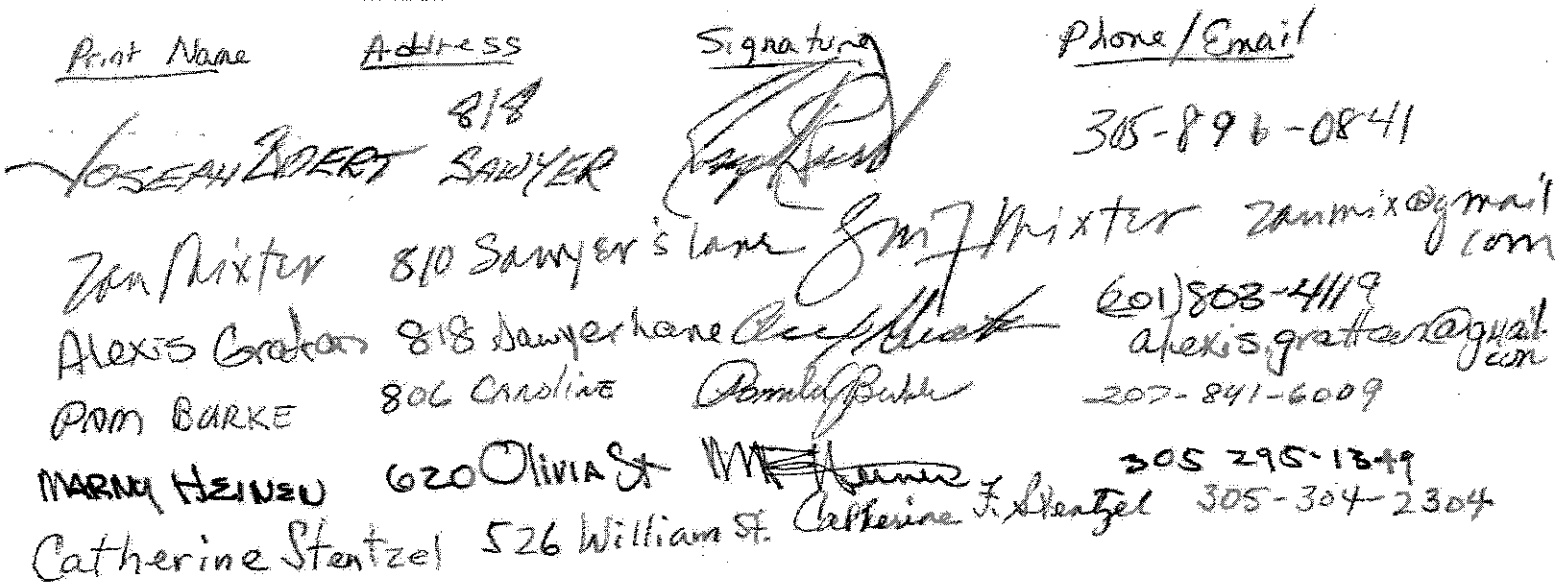 Print Name Address Signature Phone/Email
JOSEPH BOERT 818 SAWYER 305-896-0841
Zan Mixter 810 Sawyer's lane Mixter zanmix@gmail com
Alexis Grattan 818 Sawyer Lane (601)803-4119 alexis.grattan@gmail.com
PAM BURKE 806 CAROLINE Pamela J Burke 207-841-6009
MARNY HEINEN 620 OLIVIA St 305 295-1349
Catherine Stentzel 526 William St. Catherine F. Stentzel 305-304-2304